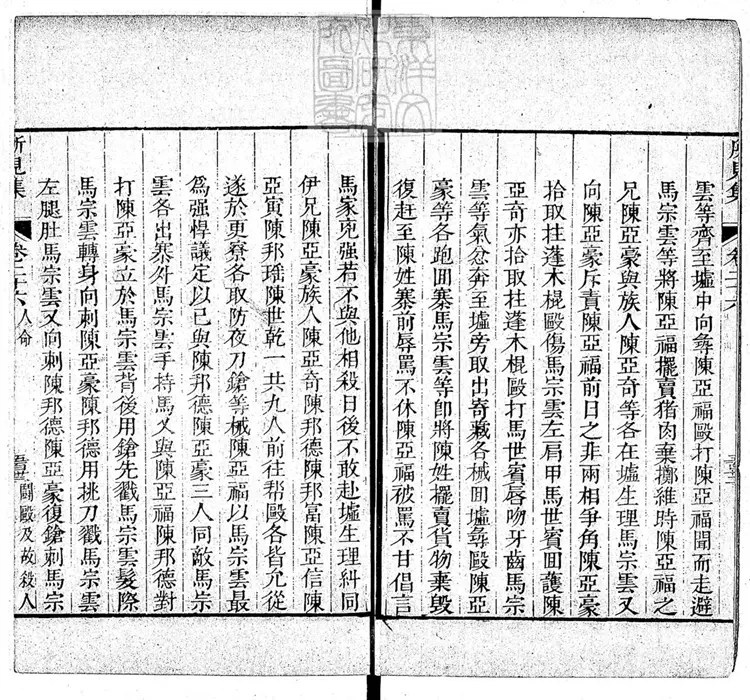 雲等齊至墟中向尋陳亞福毆打陳亞福聞而走避
馬宗雲等將陳亞福擺賣猪肉棄擲維時陳亞福之
兄陳亞豪與族人陳亞奇等各在墟生理馬宗雲又
向陳亞豪斥責陳亞福前日之非兩相爭角陳亞豪
拾取拄蓬木棍毆傷馬宗雲左肩甲馬世賓回護陳
亞奇亦拾取拄蓬木棍毆打馬世賓唇吻牙齒馬宗
雲等氣忿奔至墟旁取出寄藏各械回墟尋毆陳亞
豪等各跑回寨馬宗雲等卽將陳姓擺賣貨物棄毀
復赶至陳姓寨前辱罵不休陳亞福被罵不甘倡言
所見集
卷二十六
馬家兇强若不與他相殺日後不敢赴墟生理糾同
伊兄陳亞豪族人陳亞奇陳邦德陳邦富陳亞信陳
亞寅陳邦瑶陳世乾一共九人前往帮毆各皆允從
遂於更寮各取防夜刀鎗等械陳亞福以馬宗雲最
爲强悍議定以已與陳邦德陳亞豪三人同敵馬宗
雲各出寨外馬宗雲手持馬叉與陳亞福陳邦德對
打陳亞豪立於馬宗雲背後用鎗先戳馬宗雲髮際
馬宗雲轉身向刺陳亞豪陳邦德用挑刀戳馬宗雲
左腿肚馬宗雲又向刺陳邦德陳亞豪復鎗刺馬宗
所見集
卷二十六
人命
鬬毆及故殺人